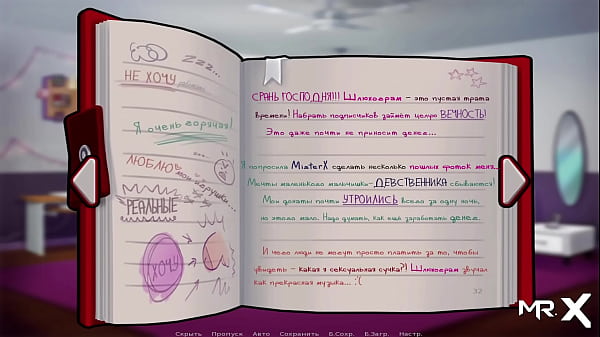 Zzz...
НЕ ХОЧУ работать
Я очень горячая!
ЛЮБЛЮ
мои игрушки...
РЕАЛЬНЫЕ
ХОЧУ
СРАНЬ ГОСПОДНЯ!!! Шлюхограм - это пустая трата
времени! Набрать подписчиков займёт целую ВЕЧНОСТЬ!
Это даже почти не приносит денег...
Я попросила MisterX сделать несколько пошлых фоток меня...
Мечты маленького мальчишки-ДЕВСТВЕННИКА сбываются!
Мои донаты почти УТРОИЛИСЬ всего за одну ночь,
но этого мало. Надо думать, как ещё заработать денег.
И чего люди не могут просто платить за то, чтобы
увидеть - какая я сексуальная сучка?! Шлюхограм звучал
как прекрасная музыка... :(
32
MR.X
Скрыть Пропуск Авто Сохранить Б.Сохр. Б.Загр. Настр.